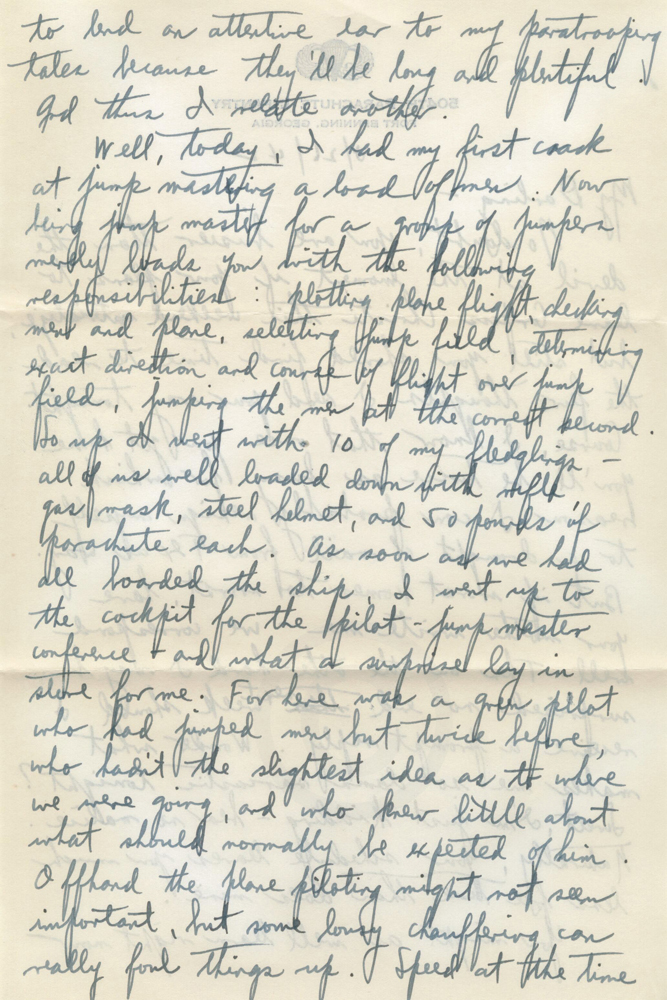 to lend an attentive ear to my paratrooping
tales because they'll be long and plentiful.
And thus I relate another.
Well, today, I had my first crack
at jump mastering a load of men. Now
being jump master for a group of jumpers
merely loads you with the following
responsibilities: plotting plane flight, checking
men and plane, selecting jump field, determining
exact direction and course of flight over jump
field, jumping the men at the correct second.
So up I went with 10 of my fledglings -
all of us well loaded down with rifle
gas mask, steel helmet, and 50 pounds of
parachute each. As soon as we had
all boarded the ship, I went up to
the cockpit for the pilot - jump master
conference - and what a surprise lay in
store for me. For here was a green pilot
who had jumped men but twice before,
who hadn't the slightest idea as to where
we were going, and who knew little about
what should normally be expected of him.
Offhand the plane piloting might not seem
important, but some lousy chauffering can
really foul things up. Speed at the time